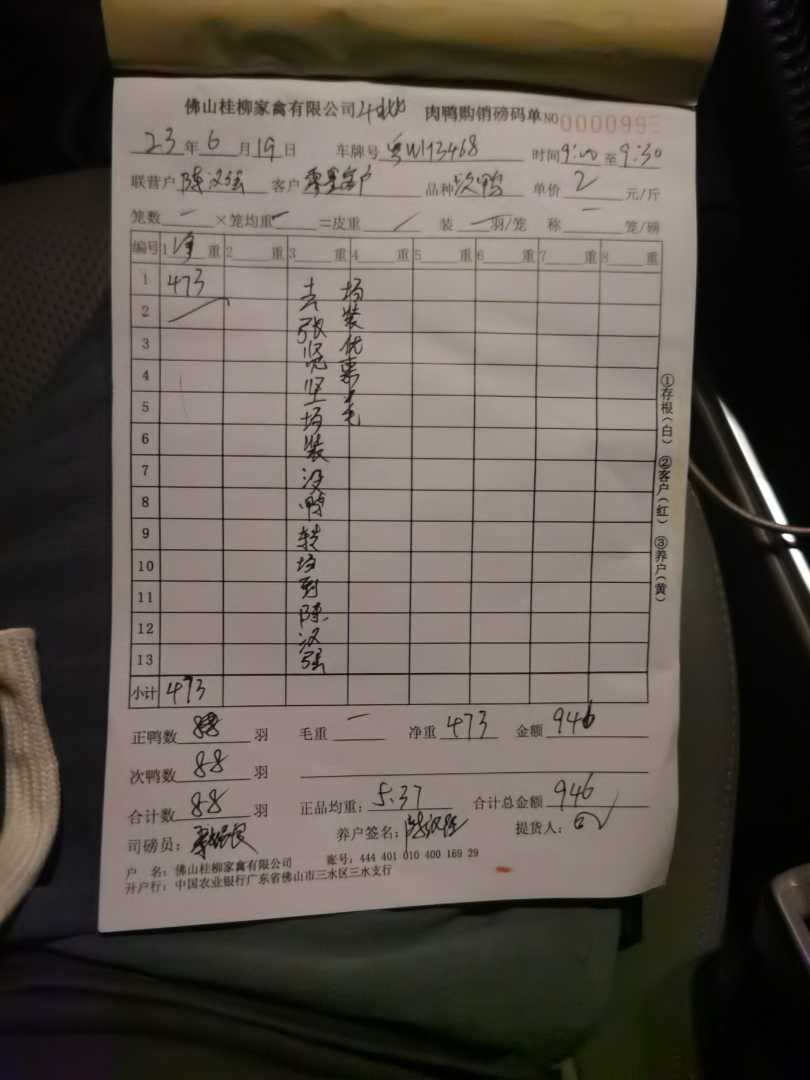 佛山桂柳家禽有限公司 肉鸭购销磅码单 NO 0000995
23年6月19日 车牌号 粤W13468 时间9:00至9:30
联营户 陈汉强 客户 零星客户 品种 次鸭 单价 2 元/斤
笼数 一 ×笼均重 一 =皮重 / 装 一 羽/笼 称 一 笼/磅
编号 1 净 重 2 重 3 重 4 重 5 重 6 重 7 重 8 重
1 473
2
3
4
5
6
7
8
9
10
11
12
13
去张坚场装次鸭转场到陈汉强
场装优惠
小计 473
正鸭数 羽 毛重 一 净重 473 金额 946
次鸭数 88 羽
合计数 88 羽 正品均重: 5.37 合计总金额 946
司磅员: 养户签名: 陈汉强 提货人:
户 名: 佛山桂柳家禽有限公司 账号: 444 401 010 400 169 29
开户行: 中国农业银行广东省佛山市三水区三水支行
①存根(白) ②客户(红) ③养户(黄)